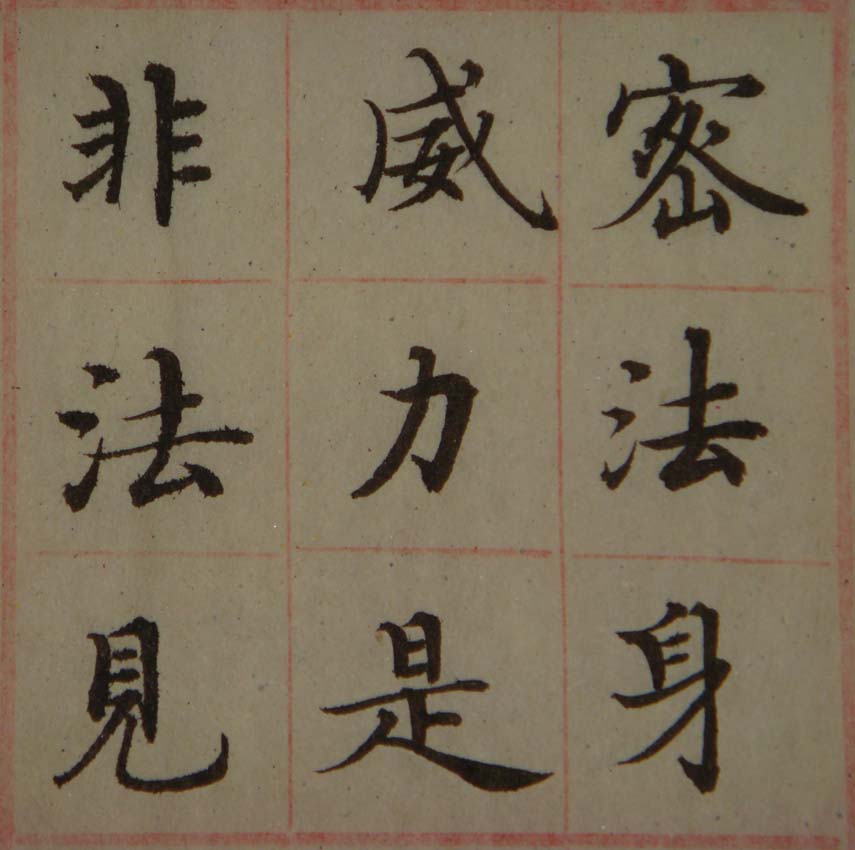 密法身
威力是
非法見